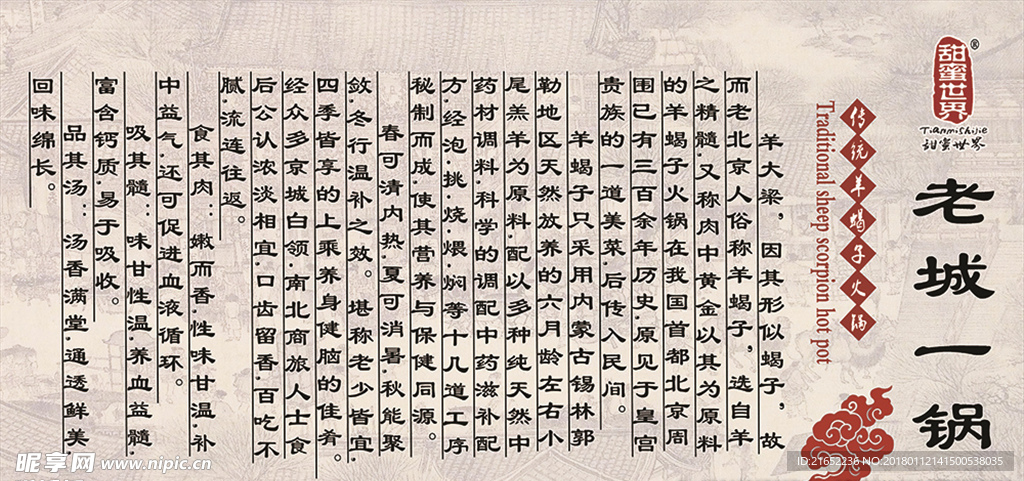 甜蜜世界®
Tianmishijie
甜蜜世界
老城一锅
传统羊蝎子火锅
Traditional sheep scorpion hot pot
羊大梁，因其形似蝎子，故
而老北京人俗称羊蝎子，选自羊
之精髓，又称肉中黄金以其为原料
的羊蝎子火锅在我国首都北京周
围已有三百余年历史，原见于皇宫
贵族的一道美菜，后传入民间。
羊蝎子只采用内蒙古锡林郭
勒地区天然放养的六月龄左右小
尾羔羊为原料，配以多种纯天然中
药材调料，科学的调配中药滋补配
方，经泡，挑，烧，煨，焖等十几道工序
秘制而成，使其营养与保健同源。
春可清内热，夏可消暑，秋能聚
敛，冬行温补之效。堪称老少皆宜，
四季皆享的上乘养身健脑的佳肴。
经众多京城白领，南北商旅人士食
后公认浓淡相宜，口齿留香，百吃不
腻，流连往返。
食其肉：嫩而香，性味甘温，补
中益气，还可促进血液循环。
吸其髓：味甘性温，养血益髓，
富含钙质，易于吸收。
品其汤：汤香满堂，通透鲜美，
回味绵长。
昵享网 www.nipic.cn
ID:21652236 NO:20180112141500538035